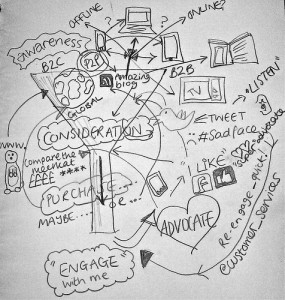 OFFLINE
ONLINE?
?
?
awareness
B2C
P2P
Amazing
blog
B2B
GLOBAL
"LISTEN"
CONSIDERATION
TWEET
#sadface
compare the
meerkat
££££ ****
"LIKE"
super-advocate
f
PURCHASE...
MAYBE...
ADVOCATE
Re-engage-quick!
@customer_services
"ENGAGE"
with me